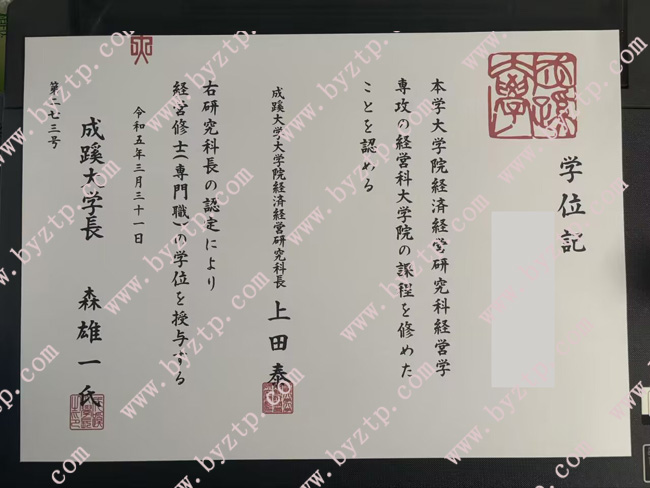 学位記
本学大学院経済経営研究科経営学
専攻の経営科大学院の課程を修めた
ことを認める
成蹊大学大学院経済経営研究科長
上田泰
右研究科長の認定により
経営修士(専門職)の学位を授与する
令和五年三月三十一日
成蹊大学長
森雄一氏
www.byztp.com